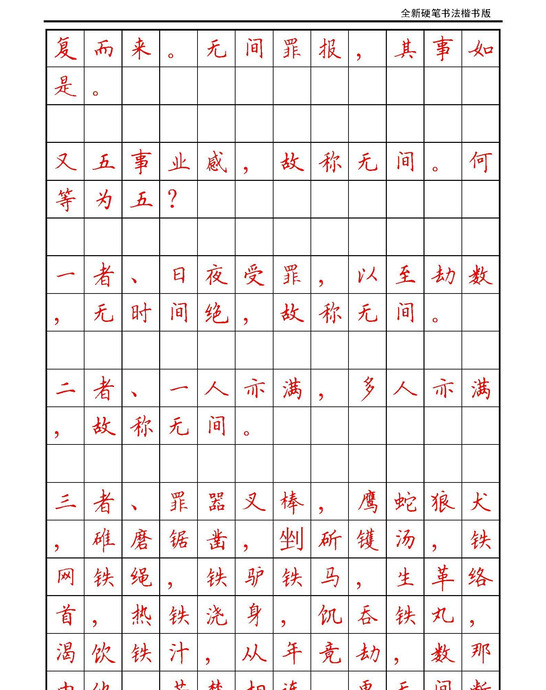 全新硬笔书法楷书版
复而来。无间罪报，其事如
是。
又五事业感，故称无间。何
等为五？
一者、日夜受罪，以至劫数
，无时间绝，故称无间。
二者、一人亦满，多人亦满
，故称无间。
三者、罪器叉棒，鹰蛇狼犬
，碓磨锯凿，剉斫镬汤，铁
网铁绳，铁驴铁马，生革络
首，热铁浇身，饥吞铁丸，
渴饮铁汁，从年竟劫，数那